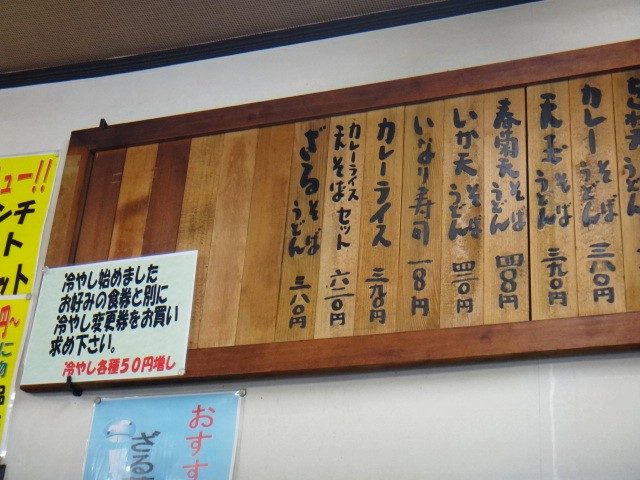 カレーそばうどん 三六〇円
天玉そばうどん 三九〇円
春菊天そばうどん 四一〇円
いか天そばうどん 四二〇円
いなり寿司 一一〇円
カレーライス 三九〇円
カレーライス
天そばセット 六二〇円
ざるそばうどん 三六〇円
冷やし始めました
お好みの食券と別に
冷やし変更券をお買い
求め下さい。
冷やし各種50円増し
ュー!!
ンチ
ト
ット
円～
に
物
品
おすす
ざる